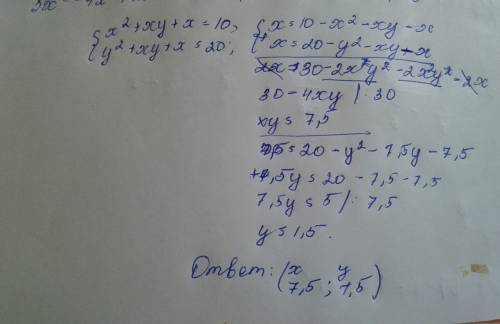 {x²+xy+x=10,
{y²+xy+x=20;
{x=10-x²-xy-x
{x=20-y²-xy-x
2x=30-2x²y²-2xy²-2x
30-4xy |:30
xy=7,5
7,5=20-y²-7,5y-7,5
+7,5y=20-7,5-7,5
7,5y=5 |:7,5
y=1,5.
Ответ: (x y
7,5; 1,5)